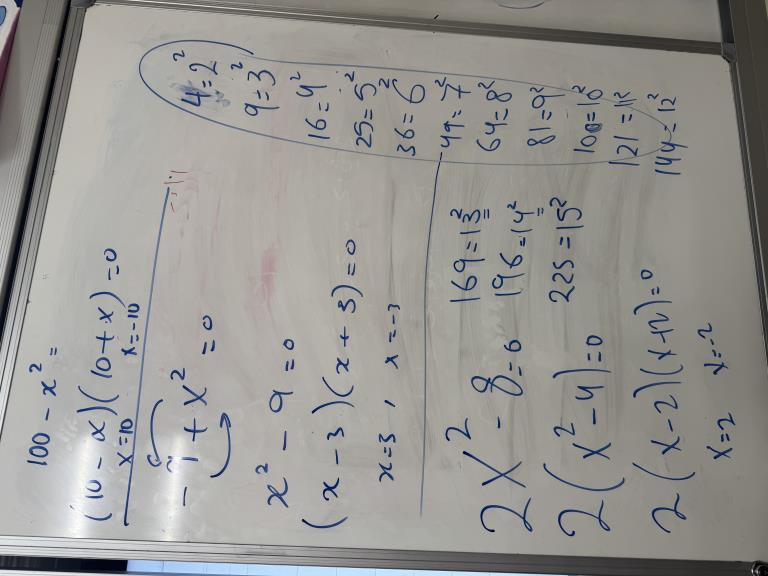 100 - x² =
(10 - x)(10 + x) = 0
x=10 x=-10
- 9 + x² = 0
x² - 9 = 0
(x - 3)(x + 3) = 0
x=3 , x=-3
2x² - 8 = 0
2(x² - 4) = 0
2(x - 2)(x+2) = 0
x=2 x=-2
4=2²
9=3²
16=4²
25=5²
36=6²
49=7²
64=8²
81=9²
100=10²
121=11²
144=12²
169=13²
196=14²
225=15²